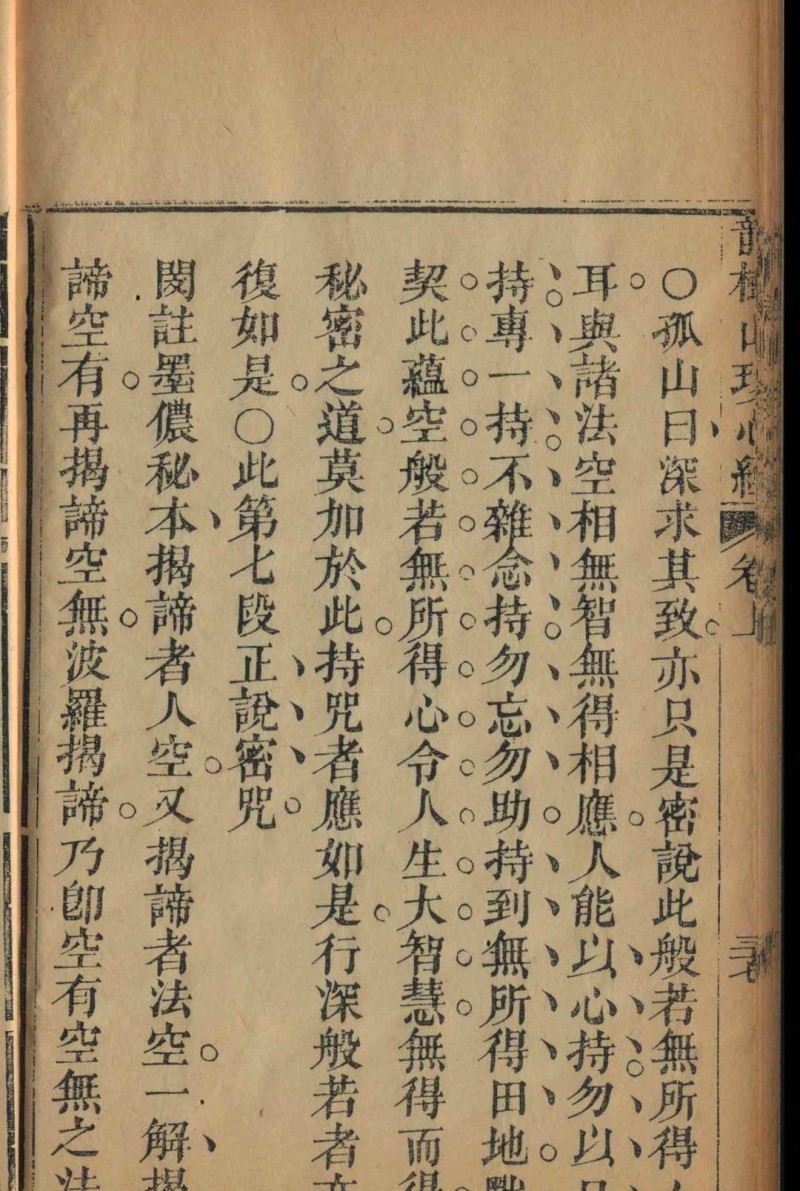 ○孤山曰深求其致亦只是密說此般若無所得
耳與諸法空相無智無得相應人能以心持勿以
持專一持不雜念持勿忘勿助持到無所得田地
契此蘊空般若無所得心令人生大智慧無得而得
秘密之道莫加於此持咒者應如是行深般若者亦
復如是○此第七段正說密咒
閔註墨儂秘本揭諦者人空又揭諦者法空一解揭
諦空有再揭諦空無波羅揭諦乃卽空有空無之法